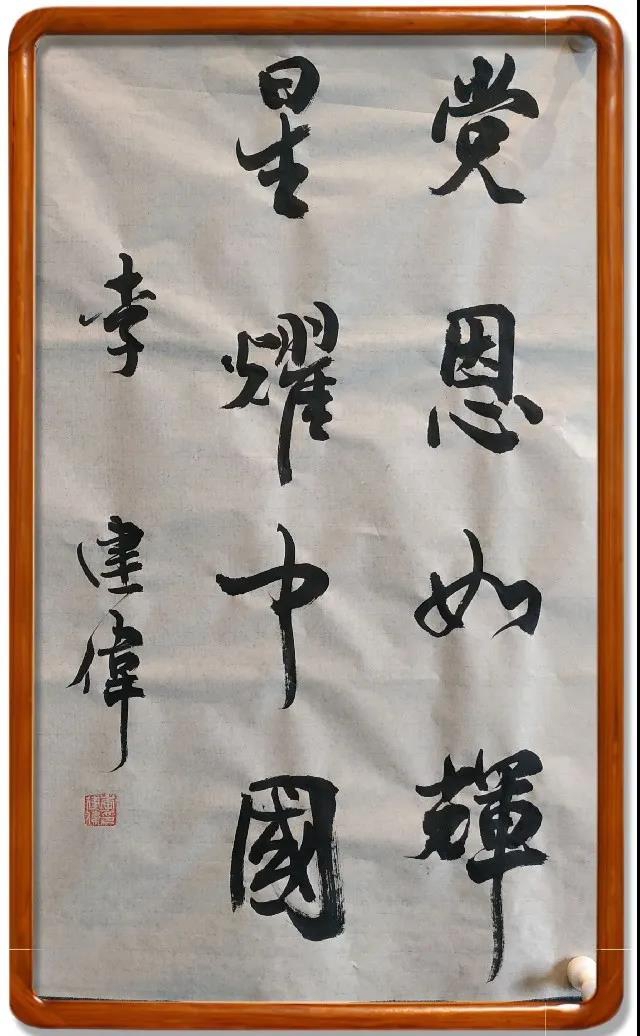 党恩如輝
星耀中國
李建偉